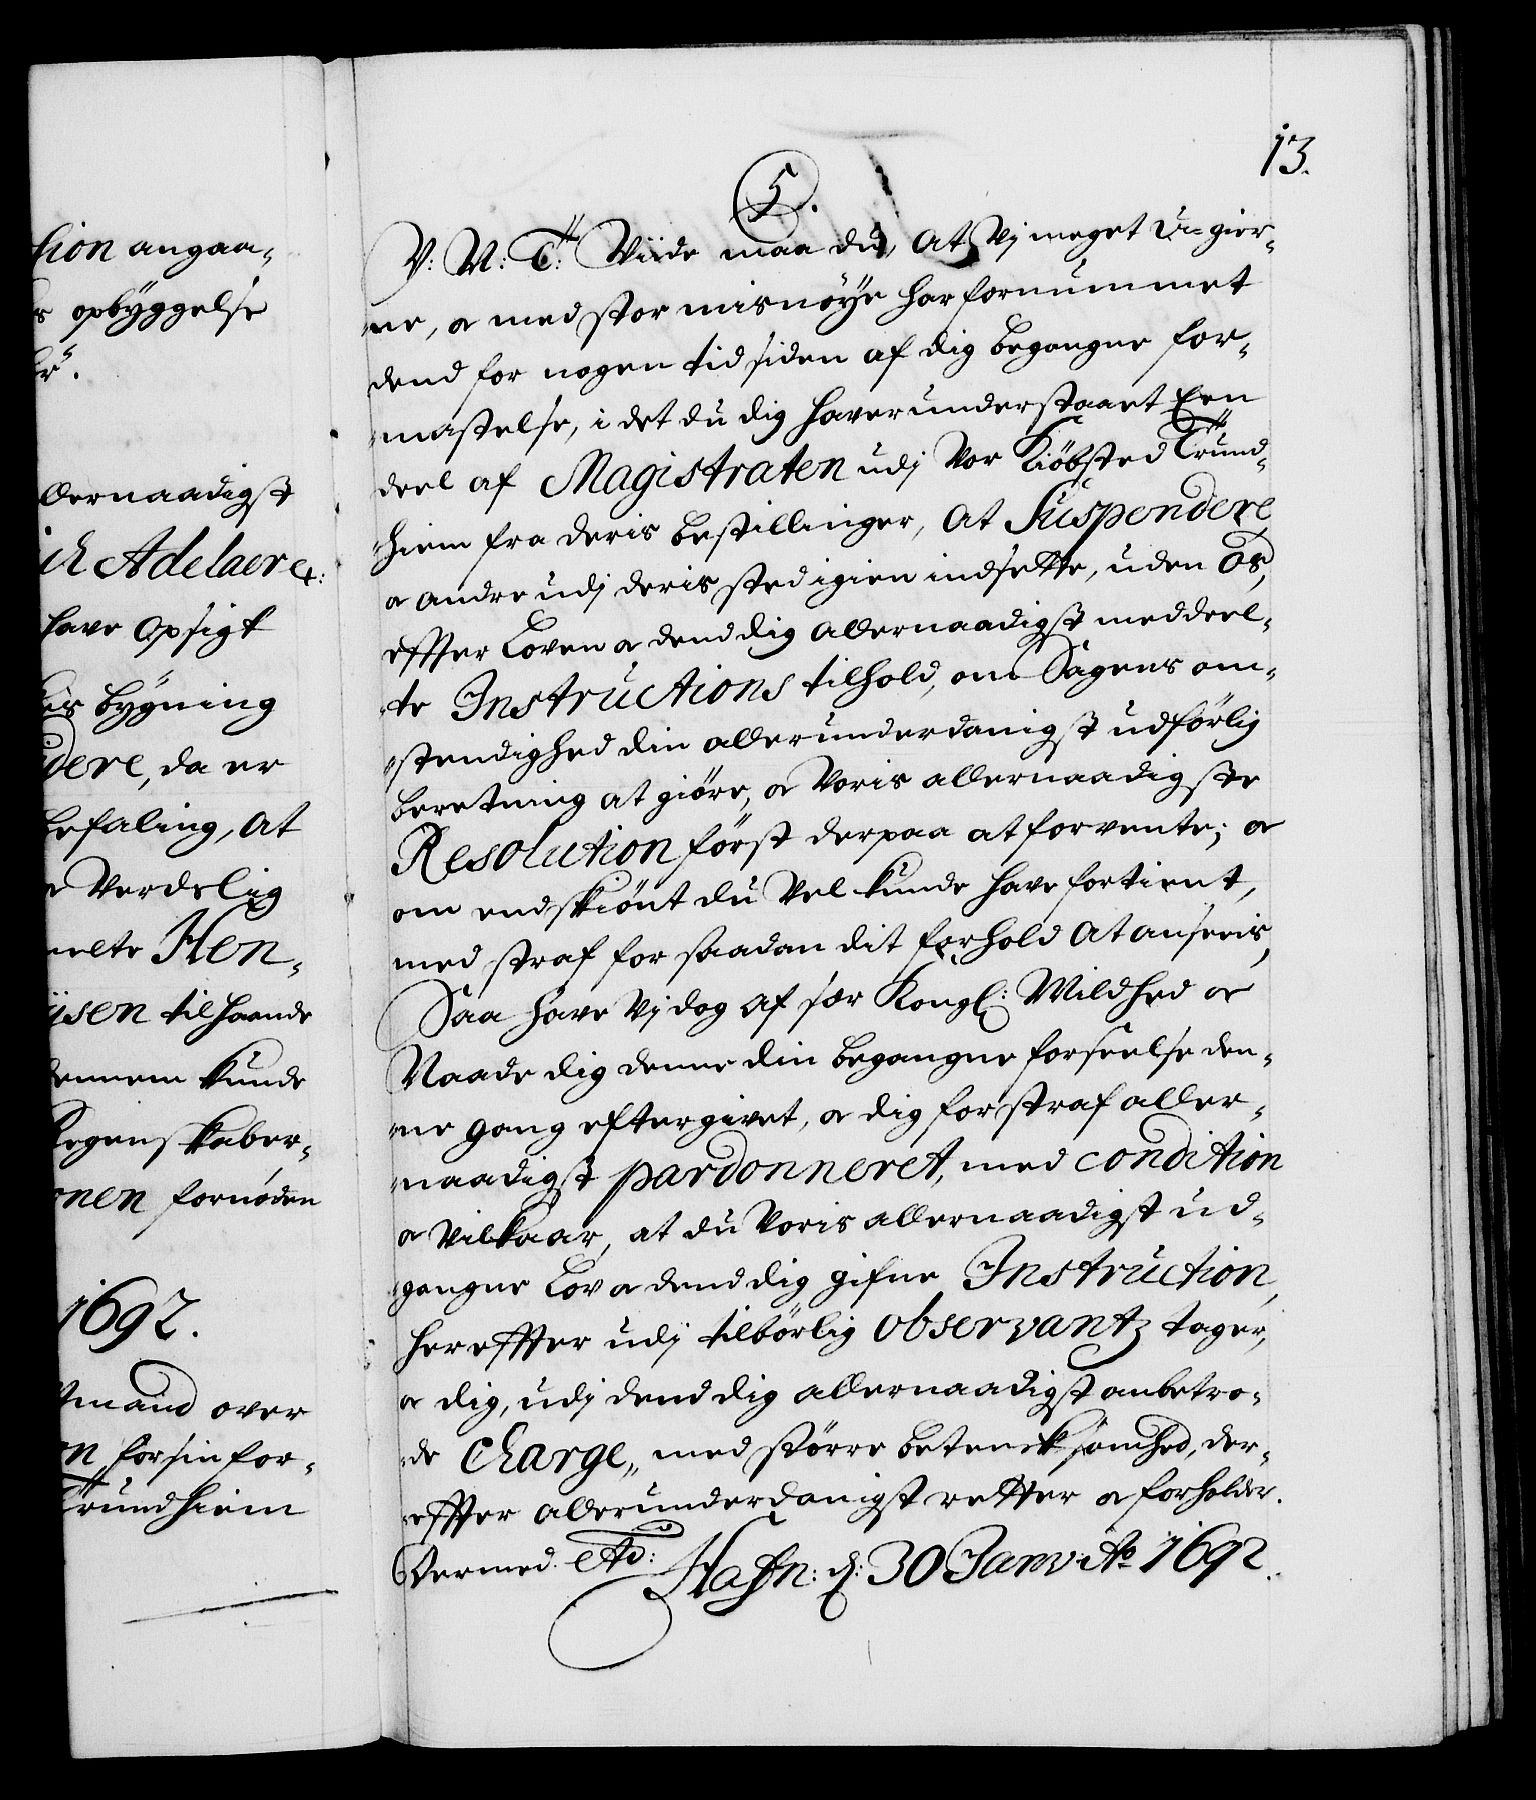 tion angaa-
s opbÿggelse
lernaadigst
Adelaer
have Opsigt
bygning
dere, da er
befaling, At
Verdslig
melte Hen-
ÿsen tilhaande
dennem kunde
Regenskaber-
onen fornöden
1692.
tmand over
for sin for-
Trundhiem
13.
5.
V: V: T: Viide maa du, At Vj meget u-gier-
ne, oc med stor misnöÿe har fornummet
dend for nogen tid siden af dig begangne for-
mastelse, i det du dig haver understaaet Een
deel af Magistraten udj Vor Kiöbsted Trund-
hiem fra deris bestillinger, At Suspendere
oc andre udj deris sted igien indsette, uden Os,
effter Loven oc dend dig allernaadigst meddeel-
te Instructions tilhold, om Sagens om-
stendighed din allerunderdanigst udförlig
beretning at giöre, oc Voris allernaadigste
Resolution först derpaa at forvente; oc
om endskiönt du Vel kunde have fortient,
med straf for saadan dit forhold At anseeis,
Saa have Vj dog af sær Kongl: Mildhed oc
Naade dig denne din begangne forseelse den-
ne gang eftergivet, oc dig for straf aller-
naadigst pardonneret, med condition
oc Vilkaar, at du Voris allernaadigst ud-
gangne Lov oc dend dig gifne Instruction,
her effter udj tilbörlig observantz tager,
oc dig, udj dend dig allernaadigst anbetro-
de Charge, med större betencksomhed, der-
effter allerunderdanigst retter oc forholder.
Dermed Etc: Hafn: d: 30 Janv: Ao 1692.